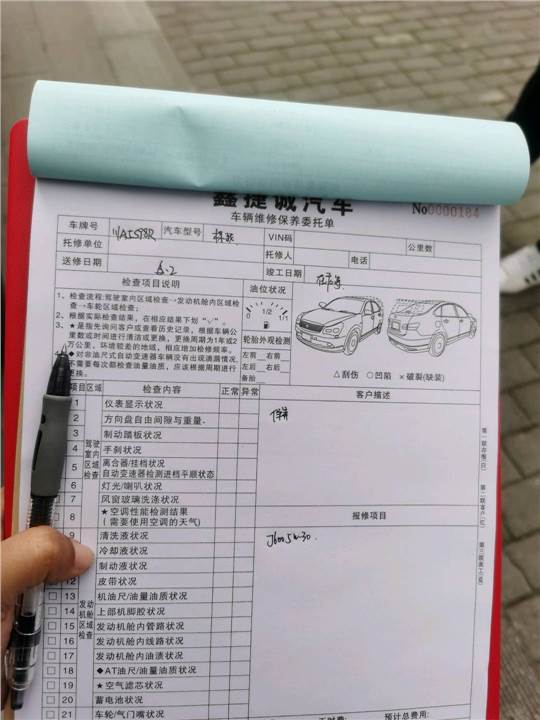 鑫捷诚汽车
车辆维修保养委托单
No0000184
车牌号 汽车型号 VIN码 公里数
托修单位 托修人 电话
送修日期 6.2 竣工日期
检查项目说明
1、检查流程:驾驶室内区域检查→发动机舱内区域检
查→车轮区域检查;
2、根据实际检查结果,在相应结果下划“√”。
3、★是指先询问客户或查看历史记录,根据车辆公
里数或时间进行清洁或更换,更换周期为1年或2
万公里,环境较差的地域,相应增加检修频率。
对非油尺式自动变速器车辆没有出现清漏情况,
不需要每次都检查油量油质,应该根据周期进行
更换。
油位状况
0 1/2 1/1
轮胎外观检测
左前 右前
左后 右后
备胎
△刮伤 ○凹陷 ×破裂(缺装)
项目 区域 检查内容 正常 异常
驾驶室内区域检查
1 仪表显示状况
2 方向盘自由间隙与重量
3 制动踏板状况
4 手刹状况
5 离合器/挂档状况
自动变速器检测进档平顺状态
6 灯光/喇叭状况
7 风窗玻璃洗涤状况
8 ★空调性能检测结果
(需要使用空调的天气)
发动机舱区域检查
9 清洗液状况
冷却液状况
制动液状况
12 皮带状况
13 机油尺/油量油质状况
14 上部机脚胶状况
15 发动机舱内管路状况
16 发动机舱内线路状况
17 发动机舱内油渍状况
18 ◆AT油尺/油量油质状况
19 ★空气滤芯状况
20 蓄电池状况
21 车轮/气门嘴状况
客户描述
报修项目
5w-30
预计总费用:
第一联存根(白)
第二联客户(红)